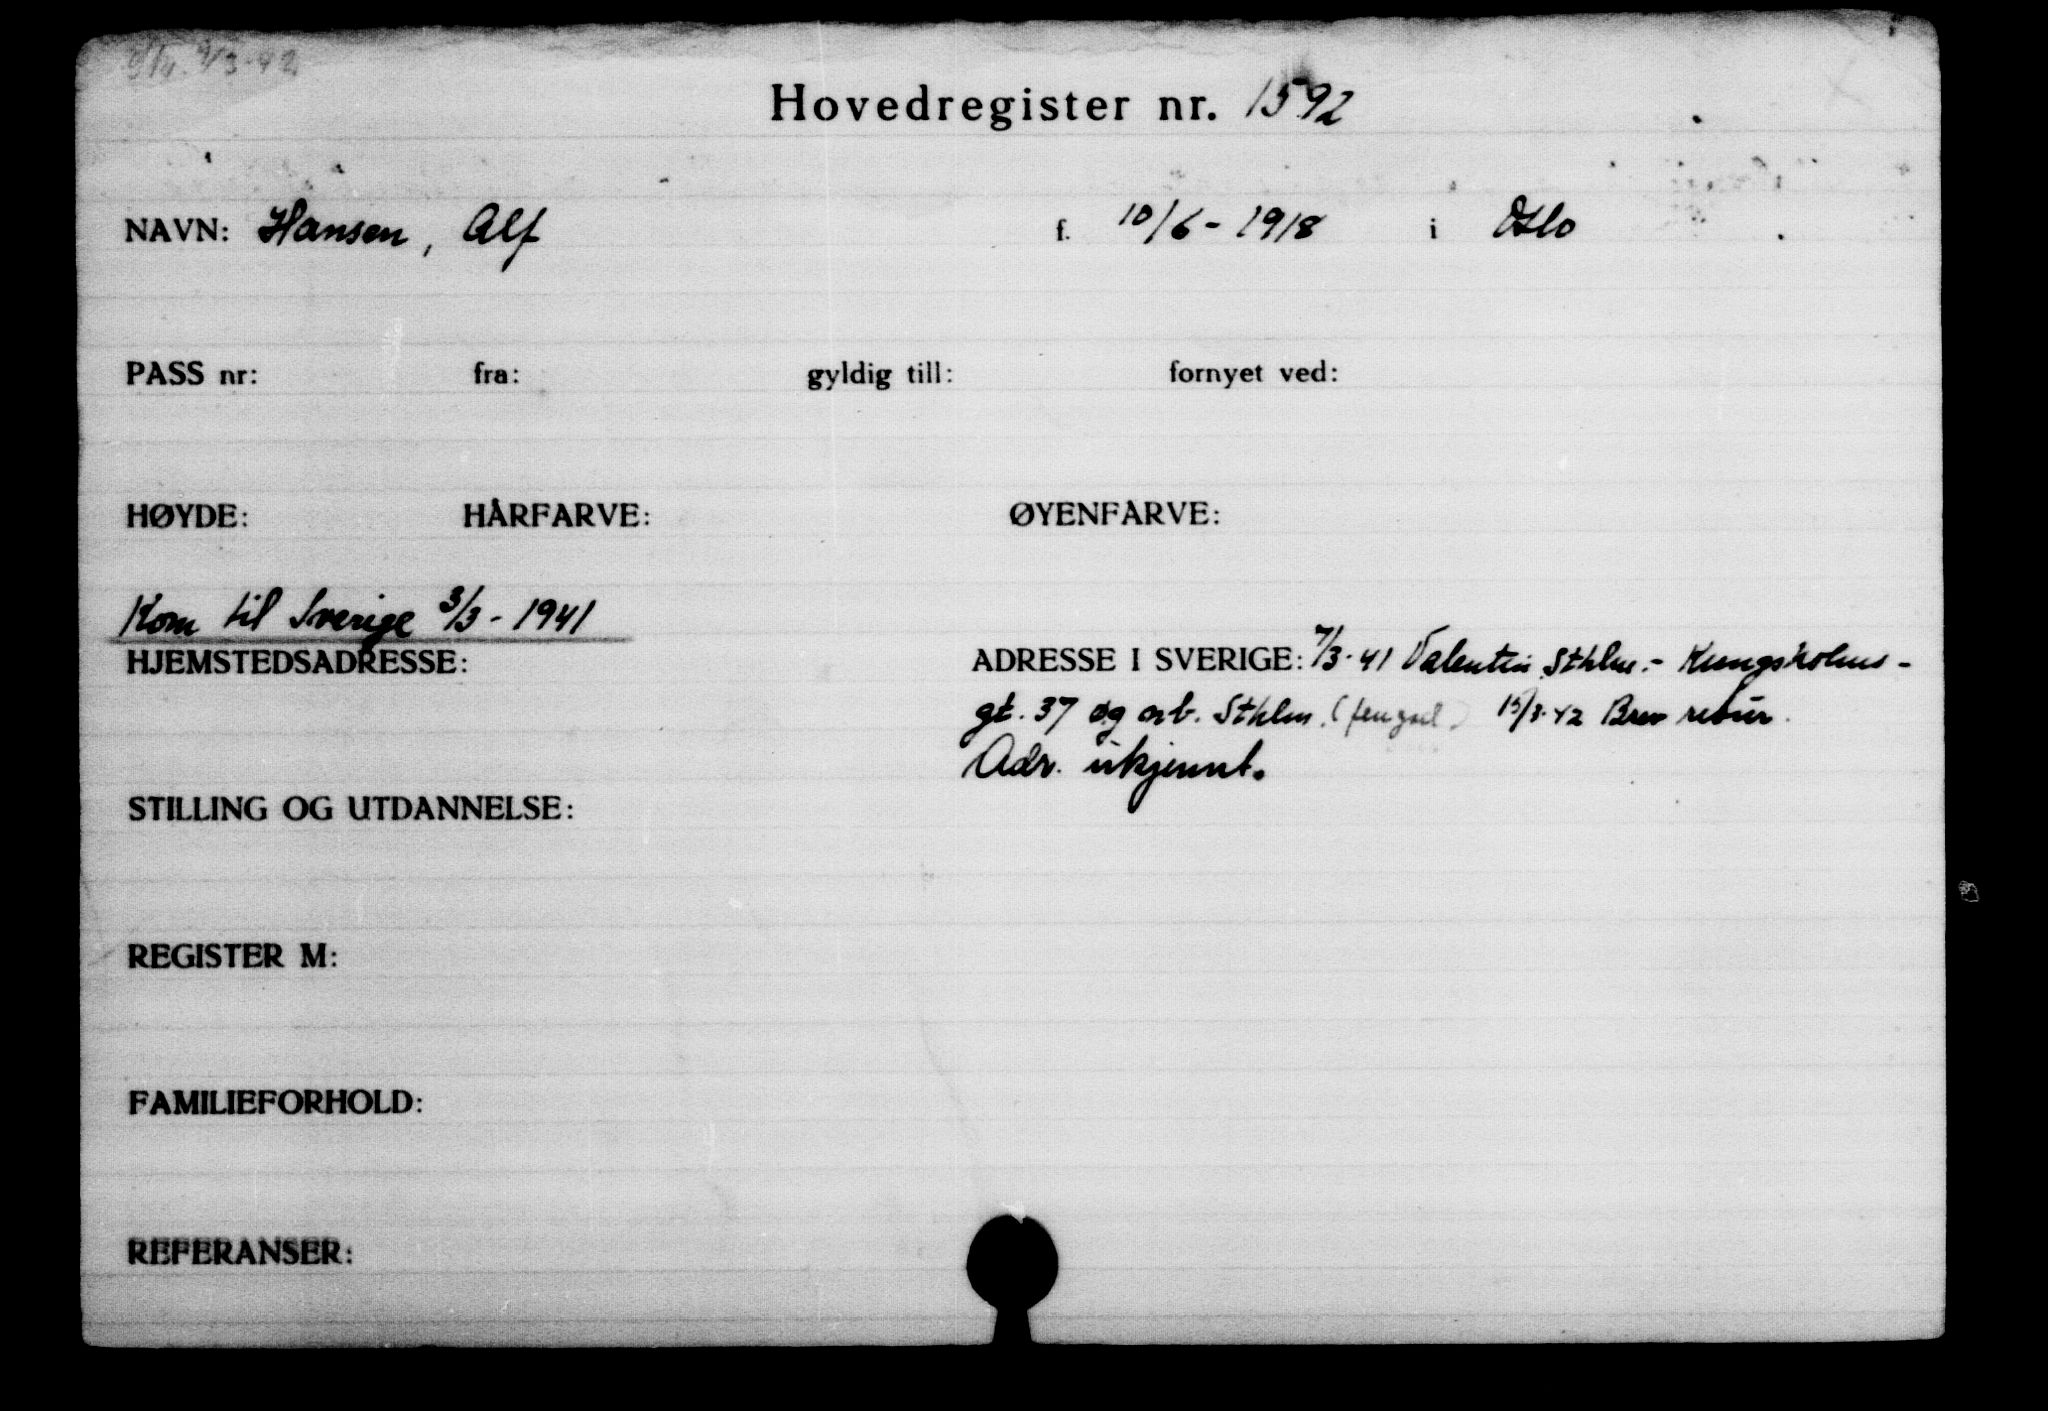 Hovedregister nr. 1592
NAVN: Hansen, Alf f. 10/6-1918 i Oslo
PASS nr: fra: gyldig till: fornyet ved:
HØYDE: HÅRFARVE: ØYENFARVE:
Kom til Sverige 3/3-1941
HJEMSTEDSADRESSE:
ADRESSE I SVERIGE: 7/3-41 Valentin Sthlm.- Kungsholms-
gt. 37 og arb. Sthlm. (fengsel) 15/3-42 Brev retur.
Adr. ukjennt.
STILLING OG UTDANNELSE:
REGISTER M:
FAMILIEFORHOLD:
REFERANSER: